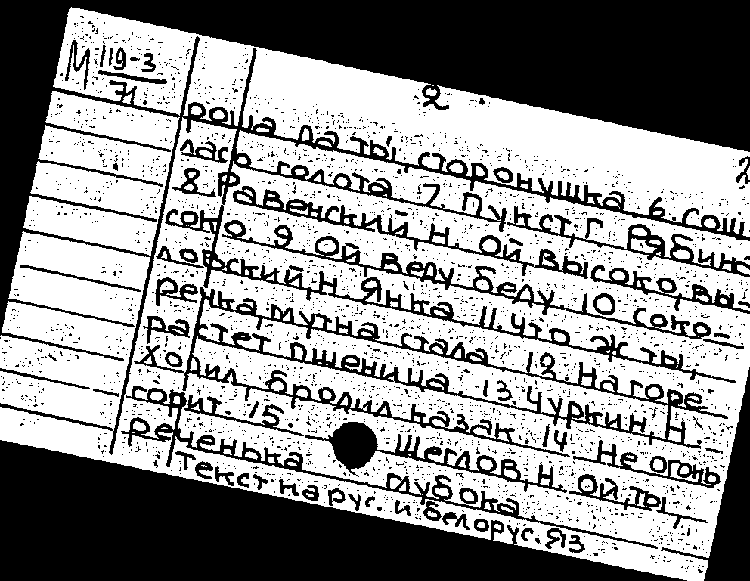 М 119-3
71.
2
роша да ты, сторонушка. 6. Сош-
лась голота. 7. Пункст, Г. Рябина
8. Равенский, Н. Ой, высоко, вы-
соко. 9. Ой, веду беду. 10 Соко-
ловский, Н. Янка. 11. Что ж ты,
речка, мутна стала. 12. На горе
растет пшеница. 13. Чуркин, Н.
Ходил, бродил казак. 14. Не огонь
горит. 15. Щеглов, Н. Ой, ты,
реченька глубока.
Текст на рус. и белорус. яз.